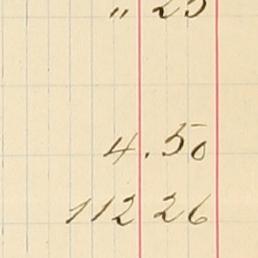 " 25
4.50
112 26